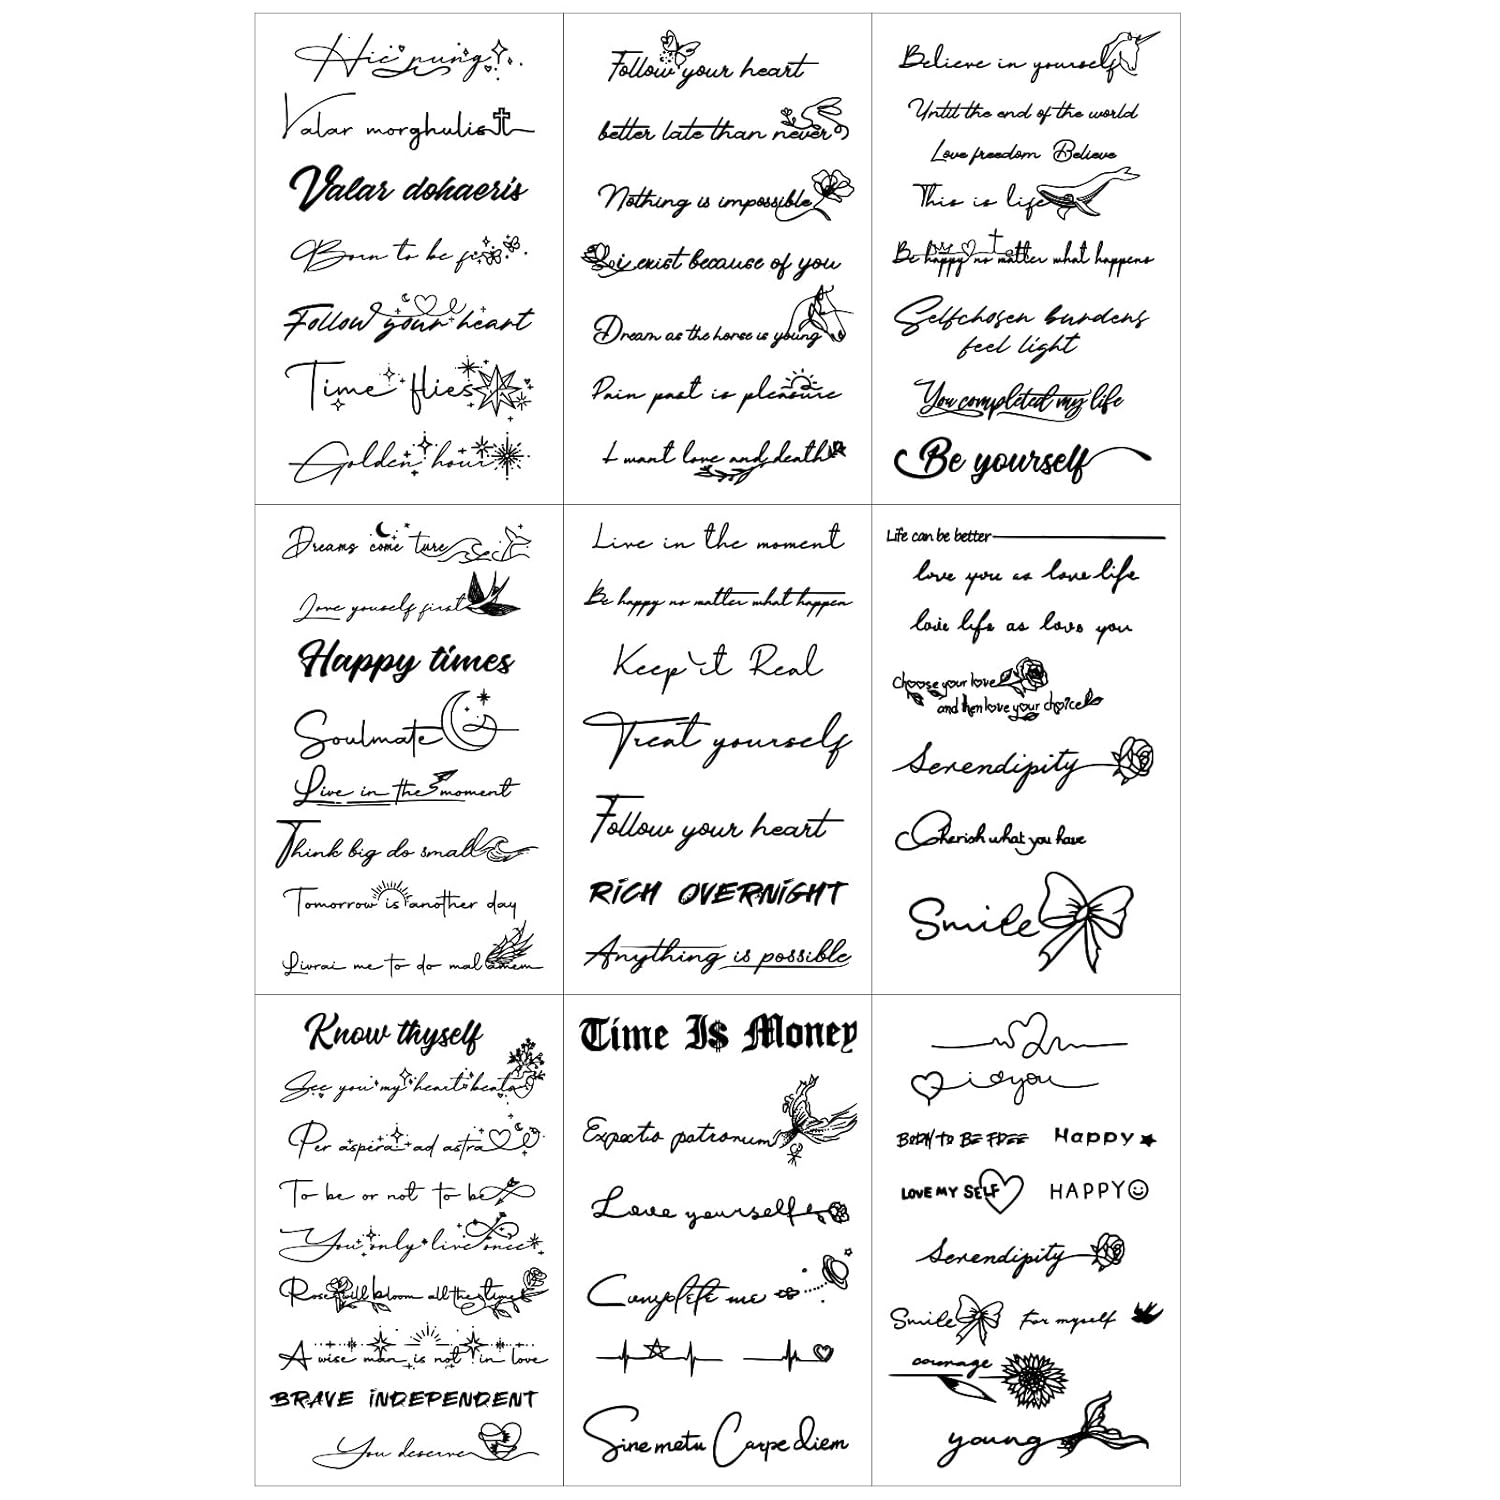 Hic nunc
Valar morghulis
Valar dohaeris
Born to be
Follow your heart
Time flies
Golden hour
Follow your heart
better late than never
Nothing is impossible
i exist because of you
Dream as the horse is young
Pain past is pleasure
I want love and death
Believe in yourself
Until the end of the world
Love freedom Believe
This is life
Be happy no matter what happens
Selfchosen burdens
feel light
You completed my life
Be yourself
Dreams come ture
Love youself first
Happy times
Soulmate
Live in the moment
Think big do small
Tomorrow is another day
Livrai me to do mal amem
Live in the moment
Be happy no matter what happen
Keep it Real
Treat yourself
Follow your heart
RiCH OVERNiGHT
Anything is possible
Life can be better
love you as love life
love life as love you
Choose your love
and then love your choice
Serendipity
Cherish what you have
Smile
Know thyself
See you my heart beats
Per aspera ad astra
To be or not to be
You only live once
Rose will bloom all the time
A wise man is not in love
BRAVE iNDEPENDENT
You deserve
Time Is Money
Expecto patronum
Love yourself
Complete me
Sine metu Carpe diem
i you
BORN TO BE FREE Happy
LOVE MY SELF HAPPY
Serendipity
Smile For myself
courage
young